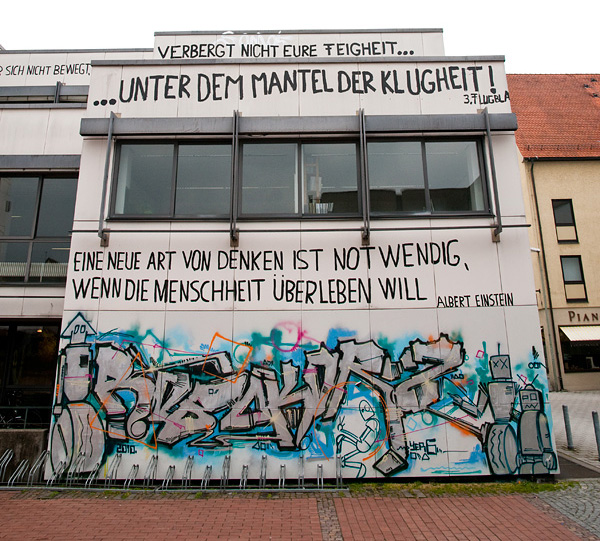 VERBERGT NICHT EURE FEIGHEIT...
R SICH NICHT BEWEGT,
...UNTER DEM MANTEL DER KLUGHEIT!
3.FLUGBLA
EINE NEUE ART VON DENKEN IST NOTWENDIG,
WENN DIE MENSCHHEIT ÜBERLEBEN WILL
ALBERT EINSTEIN
PIAN
2010